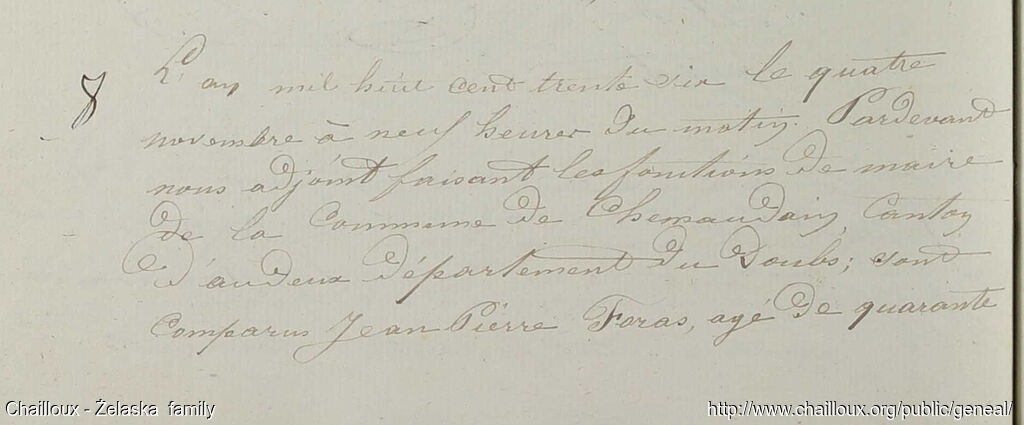 8
L'an mil huit cent trente six le quatre
novembre à neuf heures du matin. Pardevant
nous adjoint faisant les fonctions de maire
de la Commune de Chemaudin Canton
d'audeux département du Doubs; sont
Comparus Jean Pierre Foras, agé de quarante
Chailloux - Żelaska family
http://www.chailloux.org/public/geneal/